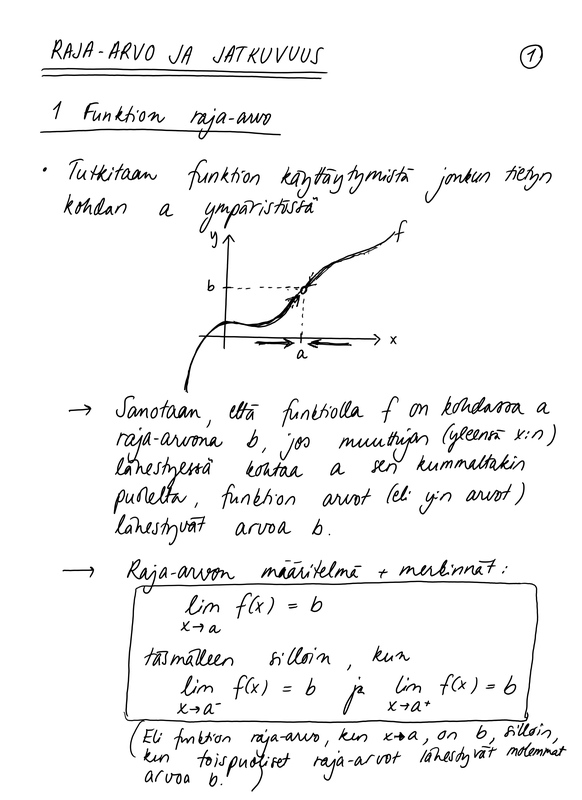 RAJA-ARVO JA JATKUVUUS
1
1 Funktion raja-arvo
• Tutkitaan funktion käyttäytymistä jonkun tietyn
kohdan a ympäristössä
y
f
b
x
a
→ Sanotaan, että funktiolla f on kohdassa a
raja-arvona b, jos muuttujan (yleensä x:n)
lähestyessä kohtaa a sen kummaltakin
puolelta, funktion arvot (eli y:n arvot)
lähestyvät arvoa b.
→ Raja-arvon määritelmä + merkinnät:
lim f(x) = b
x→a
täsmälleen silloin, kun
lim f(x) = b ja lim f(x) = b
x→a⁻ x→a⁺
(Eli funktion raja-arvo, kun x→a, on b, silloin,
kun toispuoliset raja-arvot lähestyvät molemmat
arvoa b.)